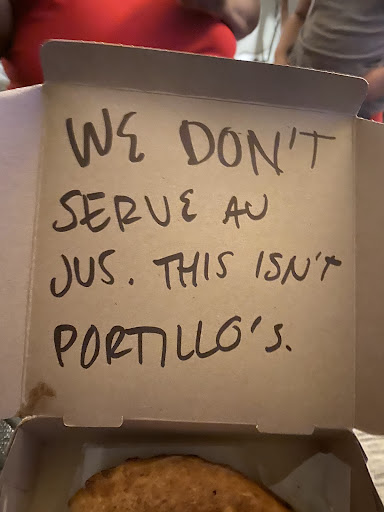 WE DON'T
SERVE AU
JUS. THIS ISN'T
PORTILLO'S.